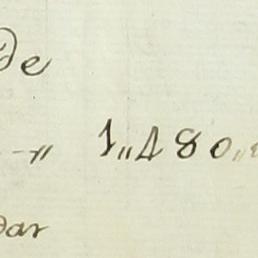 de
〃 1〃480〃
dar